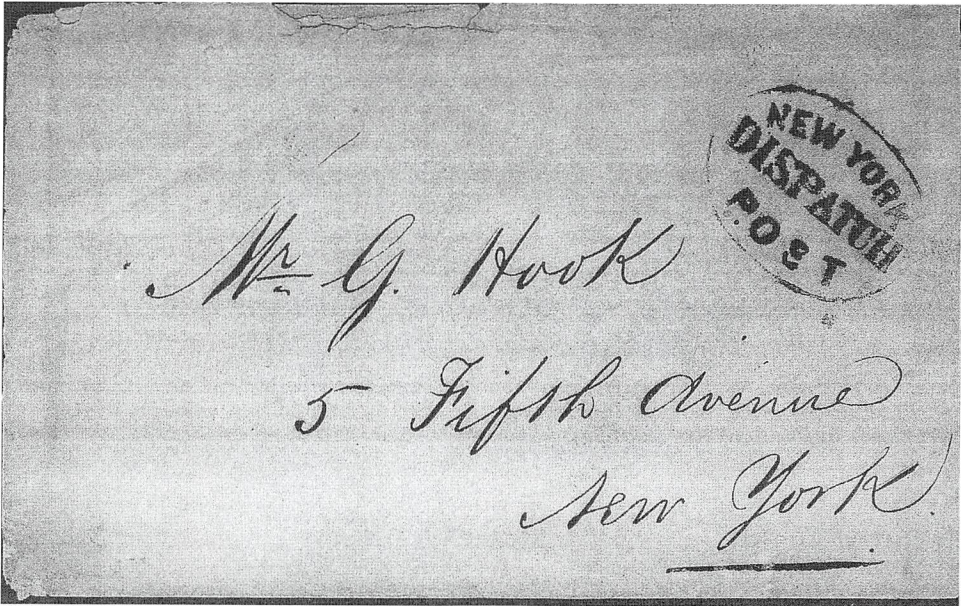 NEW YORK
DISPATCH
POST
Mr. G. Hook
5 Fifth Avenue
New York.